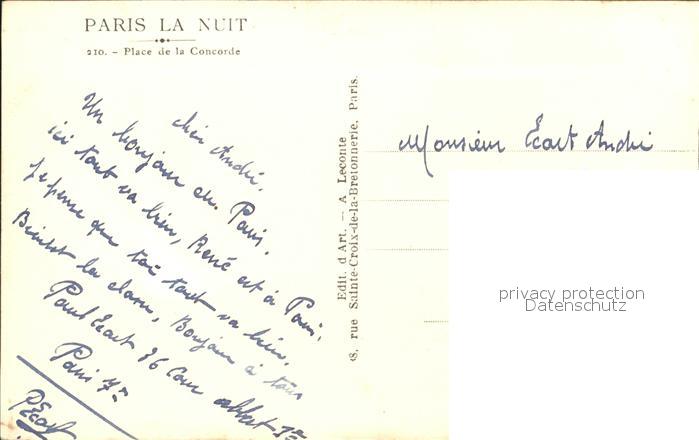 PARIS LA NUIT
210. - Place de la Concorde
cher André.
Un bonjour de Paris.
ici tout va bien, René est à Paris.
Je pense que toi tout va bien.
Bientôt la class, Bonjour à tous
Paul Ecart 36 Cour
Paris 7e
PEcart
Edit. d'Art. — A Leconte
38, rue Sainte-Croix-de-la-Bretonnerie, Paris.
Monsieur Ecart André
privacy protection
Datenschutz